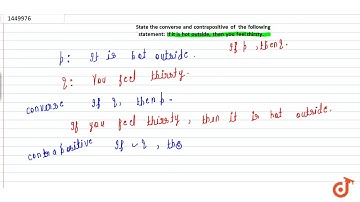 1449976
State the converse and contrapositive of the following
statement: If it is hot outside, then you feel thirsty.
p: It is hot outside. If p, then q.
q: You feel thirsty.
converse If q, then p.
If you feel thirsty, then it is hot outside.
contrapositive If ~q, the